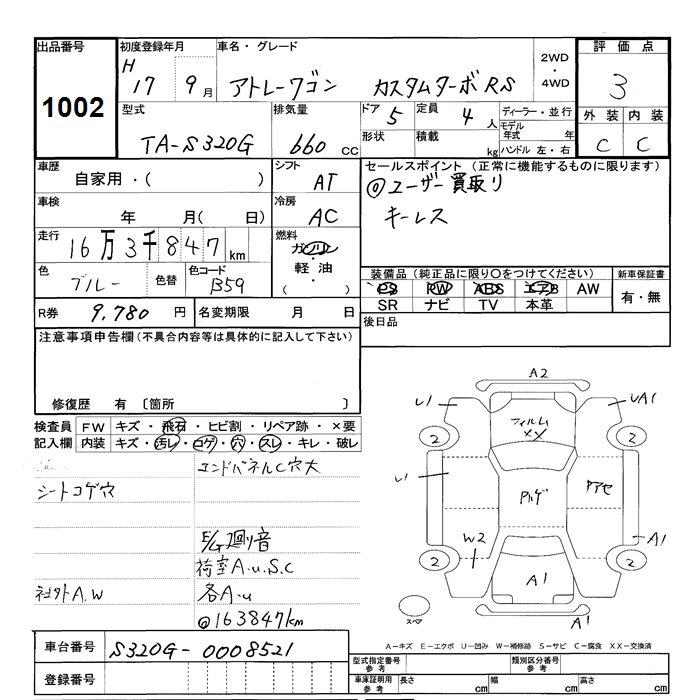 出品番号 初度登録年月 車名・グレード 2WD・4WD 評価点
1002 H 17 9月 アトレーワゴン カスタムターボRS 3
型式 排気量 ドア 5 定員 4人 ディーラー・並行 外装 内装
TA-S320G 660cc 形状 積載 kg モデル年式 年 ハンドル 左・右 C C
車歴 自家用・( ) シフト AT セールスポイント (正常に機能するものに限ります)
◎ユーザー買取り
車検 年 月( 日) 冷房 AC キーレス
走行 16万3千847km 燃料 ガソリン・軽油・( )
色 ブルー 色替 色コード B59 装備品 (純正品に限り○をつけてください) 新車保証書
PS PW ABS エアB AW 有・無
SR ナビ TV 本革
R券 9,780円 名変期限 月 日 後日品
注意事項申告欄(不具合内容等は具体的に記入して下さい)
修復歴 有 〔箇所 〕
検査員記入欄 FW キズ・飛石・ヒビ割・リペア跡・×要
内装 キズ・汚レ・コゲ・穴・スレ・キレ・破レ
エンドパネルC穴大
シートコゲ穴
E/G廻り音
荷室A.U.S.C
社外A.W 各A.U
◎163847km
A2
U1 UA1
フィルム XX
2 2
U1
W2
A1
A1
2 2
スペア
A1
A-キズ E-エクボ U-凹み W-補修跡 S-サビ C-腐食 XX-交換済
車台番号 S320G-0008521
型式指定番号 参考 類別区分番号 参考
登録番号 車庫証明用 参考 長さ cm 幅 cm 高さ cm